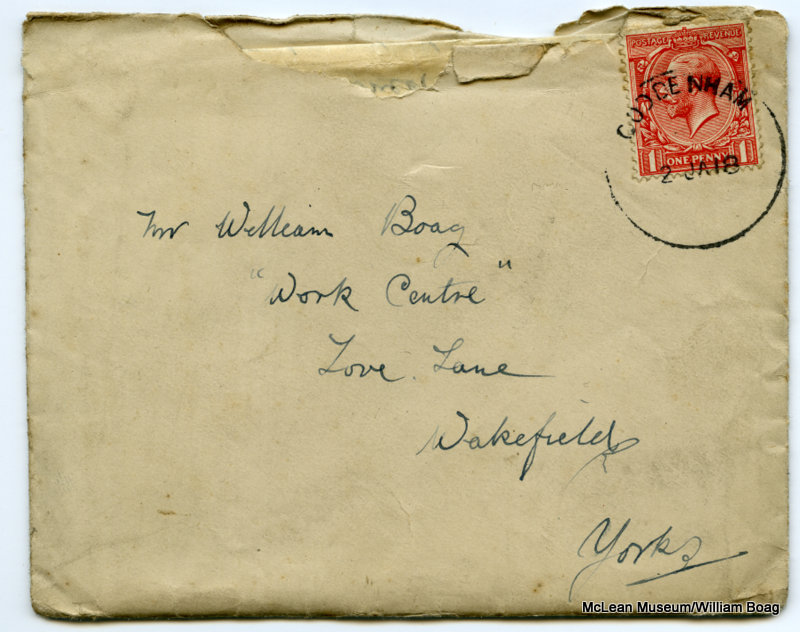 POSTAGE REVENUE
CODDENHAM
1 ONE PENNY 1
2 JA 18
Mr William Boag
"Work Centre"
Love Lane
Wakefield
Yorks
McLean Museum/William Boag